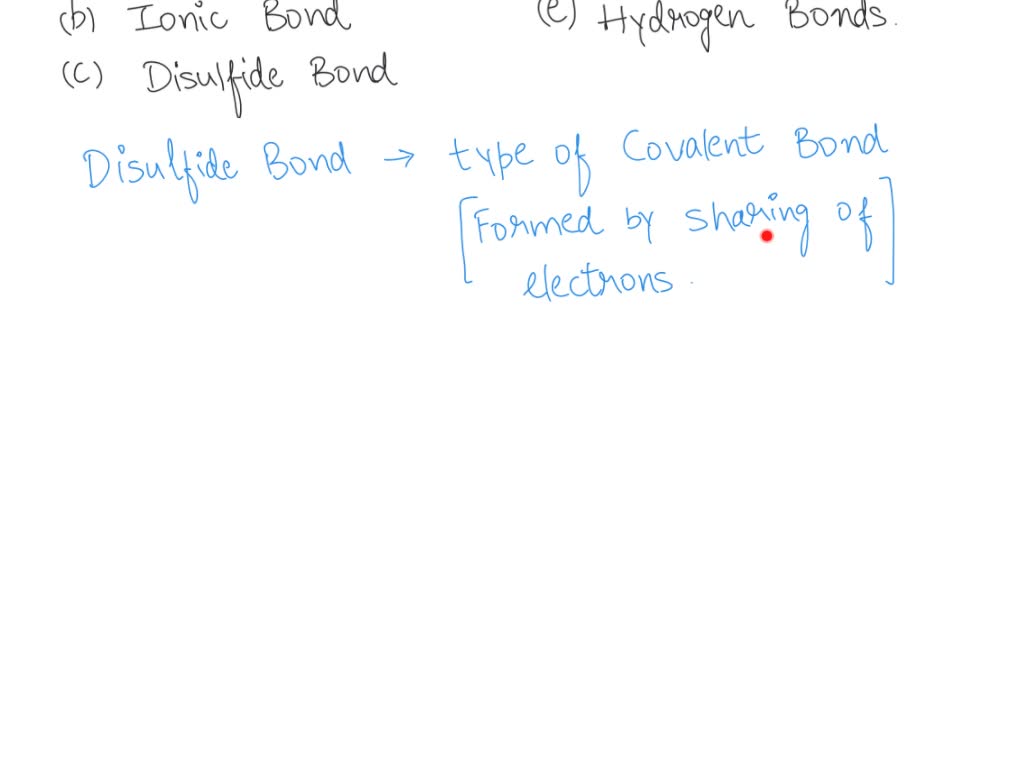 (b) Ionic Bond (e) Hydrogen Bonds.
(c) Disulfide Bond
Disulfide Bond → type of Covalent Bond
[Formed by sharing of
electrons.]